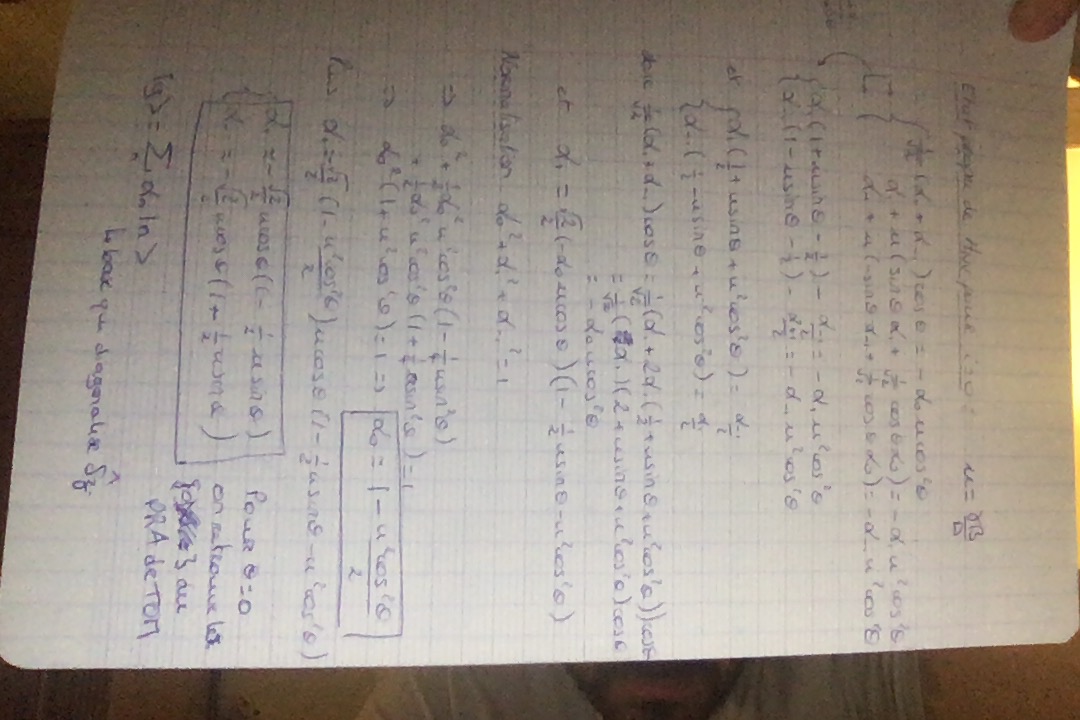 Etat propre de H_NV pour i=0 : u = γB/D
{ 1/√2 (α₁ + α₋₁) cosθ = - α₀ u cos²θ
α₁ + u (sinθ α₁ + 1/√2 cosθ α₀) = - α₁ u² cos²θ
α₋₁ + u (-sinθ α₋₁ + 1/√2 cosθ α₀) = - α₋₁ u² cos²θ
{ α₁ (1 + u sinθ - 1/2) - α₋₁/2 = - α₁ u² cos²θ
{ α₋₁ (1 - u sinθ - 1/2) - α₊₁/2 = - α₋₁ u² cos²θ
et { α₁ (1/2 + u sinθ + u² cos²θ) = α₋₁/2
{ α₋₁ (1/2 - u sinθ + u² cos²θ) = α₁/2
donc 1/√2 (α₁ + α₋₁) cosθ = 1/√2 (α₁ + 2α₁ (1/2 + u sinθ + u² cos²θ)) cosθ
= 1/√2 (α₁)(2 + u sinθ + u² cos²θ) cosθ
= - α₀ u cos²θ
et α₁ = √2/2 (-α₀ u cosθ)(1 - 1/2 u sinθ - u² cos²θ)
Normalisation α₀² + α₁² + α₋₁² = 1
⇒ α₀² + 1/2 α₀² u² cos²θ (1 - 1/4 u sin²θ)
+ 1/2 α₀² u² cos²θ (1 + 1/4 sin²θ) = 1
⇒ α₀² (1 + u² cos²θ) = 1 ⇒ α₀ = 1 - u² cos²θ/2
Puis α₁ = - √2/2 (1 - u² cos²θ/2) u cosθ (1 - 1/2 u sinθ - u² cos²θ)
{ α₁ ≈ - √2/2 u cosθ (1 - 1/2 u sinθ)
α₋₁ ≈ - √2/2 u cosθ (1 + 1/2 u sinθ)
Pour θ=0
on retrouve les
} du
PRA de TOM
|g> = Σₙ αₙ |n>
↳ base qui diagonalise Ŝz